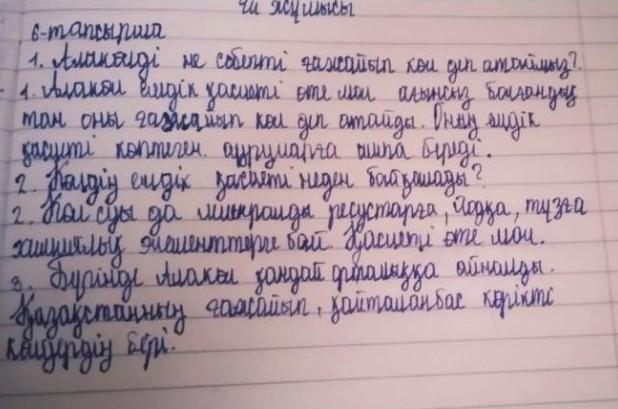 Үй жұмысы
6-тапсырма
1. Алакөлді не себепті ғажайып көл деп атаймыз?
1. Алакөл емдік қасиеті өте мол ағынсыз болғандық
тан оны ғажайып көл деп атайды. Оның емдік
қасиеті көптеген ауруларға шипа береді.
2. Көлдің емдік қасиеті неден байқалады?
2. Көл суы да минералды ресустарға, йодқа, тұзға
химиялық элементтерге бай. Қасиеті өте мол.
3. Бүгінде Алакөл қандай орталыққа айналды.
Қазақстанның ғажайып, қайталанбас көрікті
көлдердің бірі.